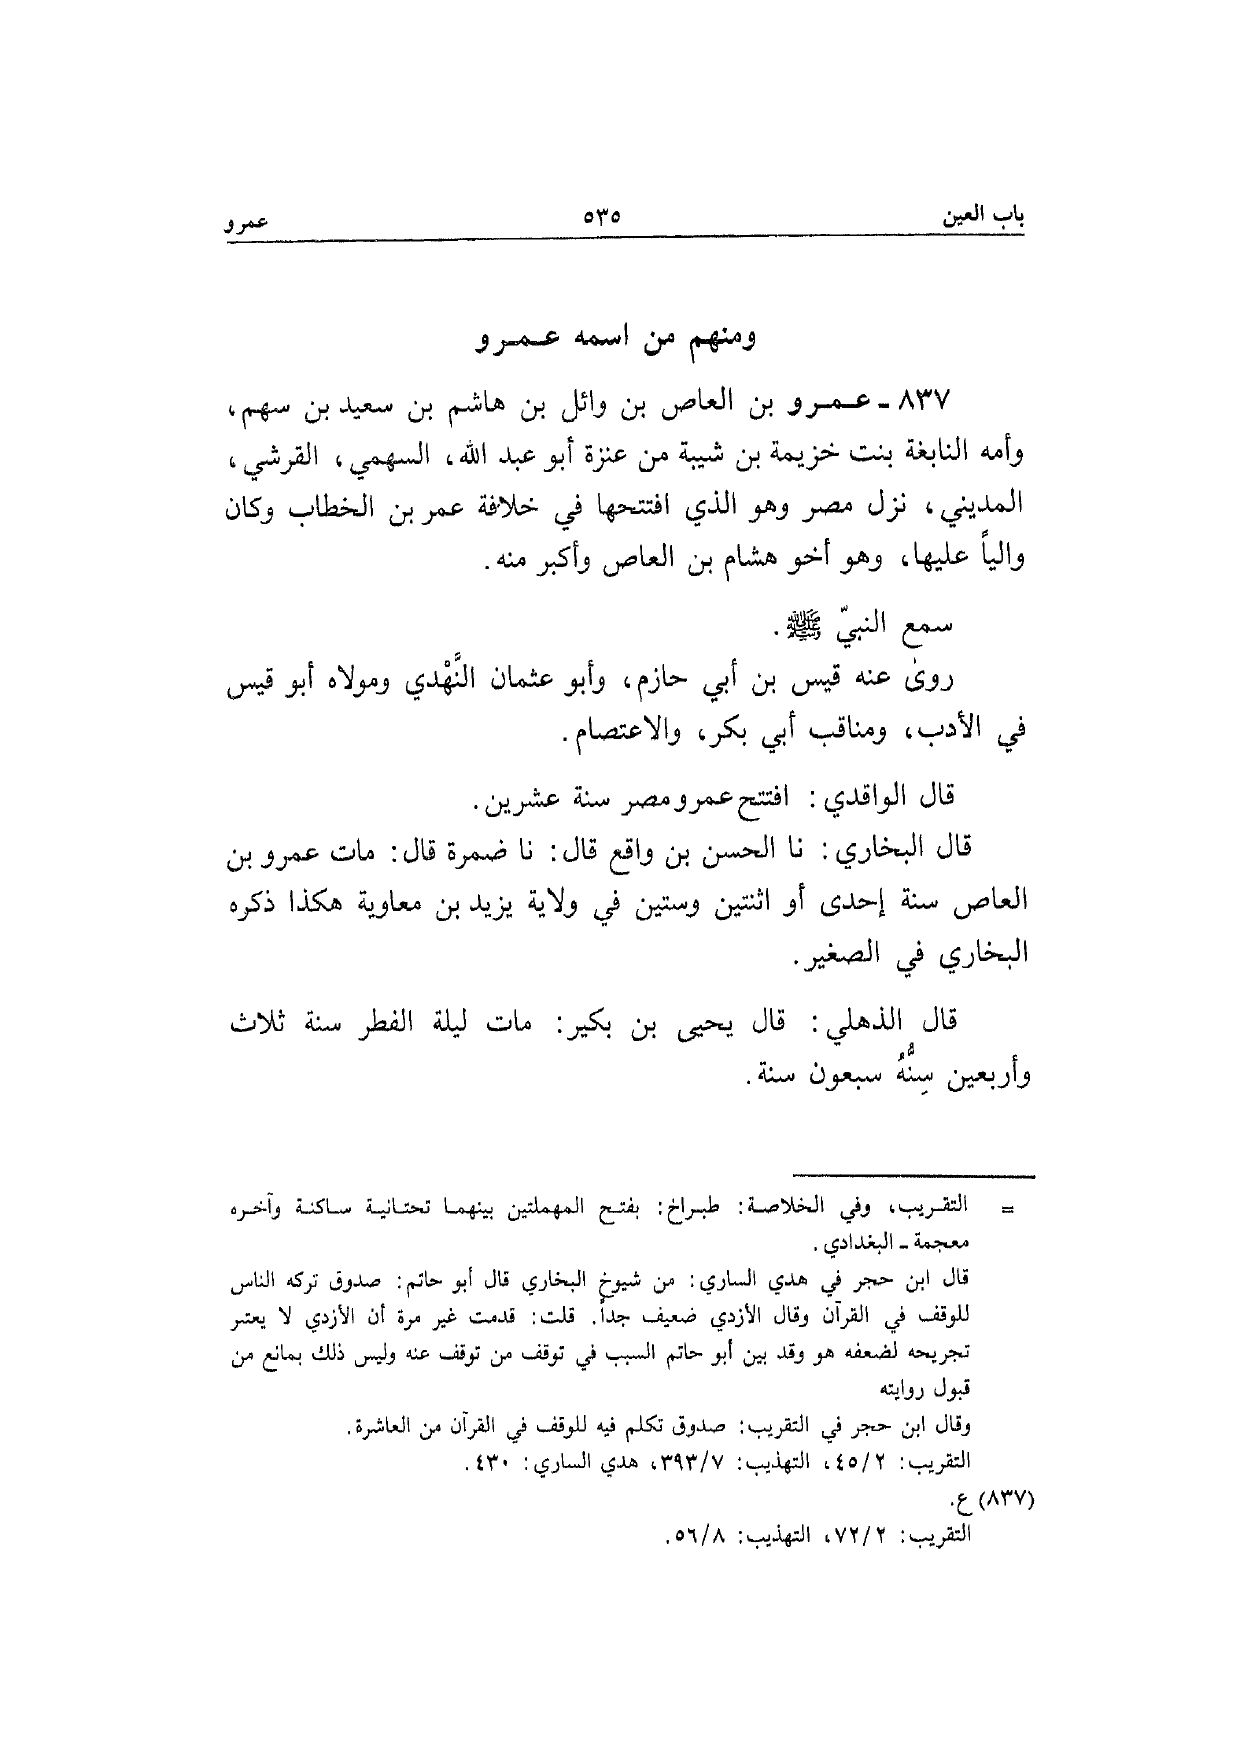 باب العين ٥٣٥ عمرو
ومنهم من اسمه عـمـرو
٨٣٧ ـ عـمـرو بن العاص بن وائل بن هاشم بن سعيد بن سهم،
وأمه النابغة بنت خزيمة بن شيبة من عنزة أبو عبد الله، السهمي، القرشي،
المديني، نزل مصر وهو الذي افتتحها في خلافة عمر بن الخطاب وكان
والياً عليها، وهو أخو هشام بن العاص وأكبر منه.
سمع النبيّ ﷺ.
روىٰ عنه قيس بن أبي حازم، وأبو عثمان النَّهْدي ومولاه أبو قيس
في الأدب، ومناقب أبي بكر، والاعتصام.
قال الواقدي: افتتح عمرو مصر سنة عشرين.
قال البخاري: نا الحسن بن واقع قال: نا ضمرة قال: مات عمرو بن
العاص سنة إحدى أو اثنتين وستين في ولاية يزيد بن معاوية هكذا ذكره
البخاري في الصغير.
قال الذهلي: قال يحيى بن بكير: مات ليلة الفطر سنة ثلاث
وأربعين سِنُّهُ سبعون سنة.
= التقريب، وفي الخلاصة: طبراخ: بفتح المهملتين بينهما تحتانية ساكنة وآخره
معجمة ـ البغدادي.
قال ابن حجر في هدي الساري: من شيوخ البخاري قال أبو حاتم: صدوق تركه الناس
للوقف في القرآن وقال الأزدي ضعيف جداً. قلت: قدمت غير مرة أن الأزدي لا يعتبر
تجريحه لضعفه هو وقد بين أبو حاتم السبب في توقف من توقف عنه وليس ذلك بمانع من
قبول روايته
وقال ابن حجر في التقريب: صدوق تكلم فيه للوقف في القرآن من العاشرة.
التقريب: ٤٥/٢، التهذيب: ٣٩٣/٧، هدي الساري: ٤٣٠.
(٨٣٧) ع.
التقريب: ٧٢/٢، التهذيب: ٥٦/٨.